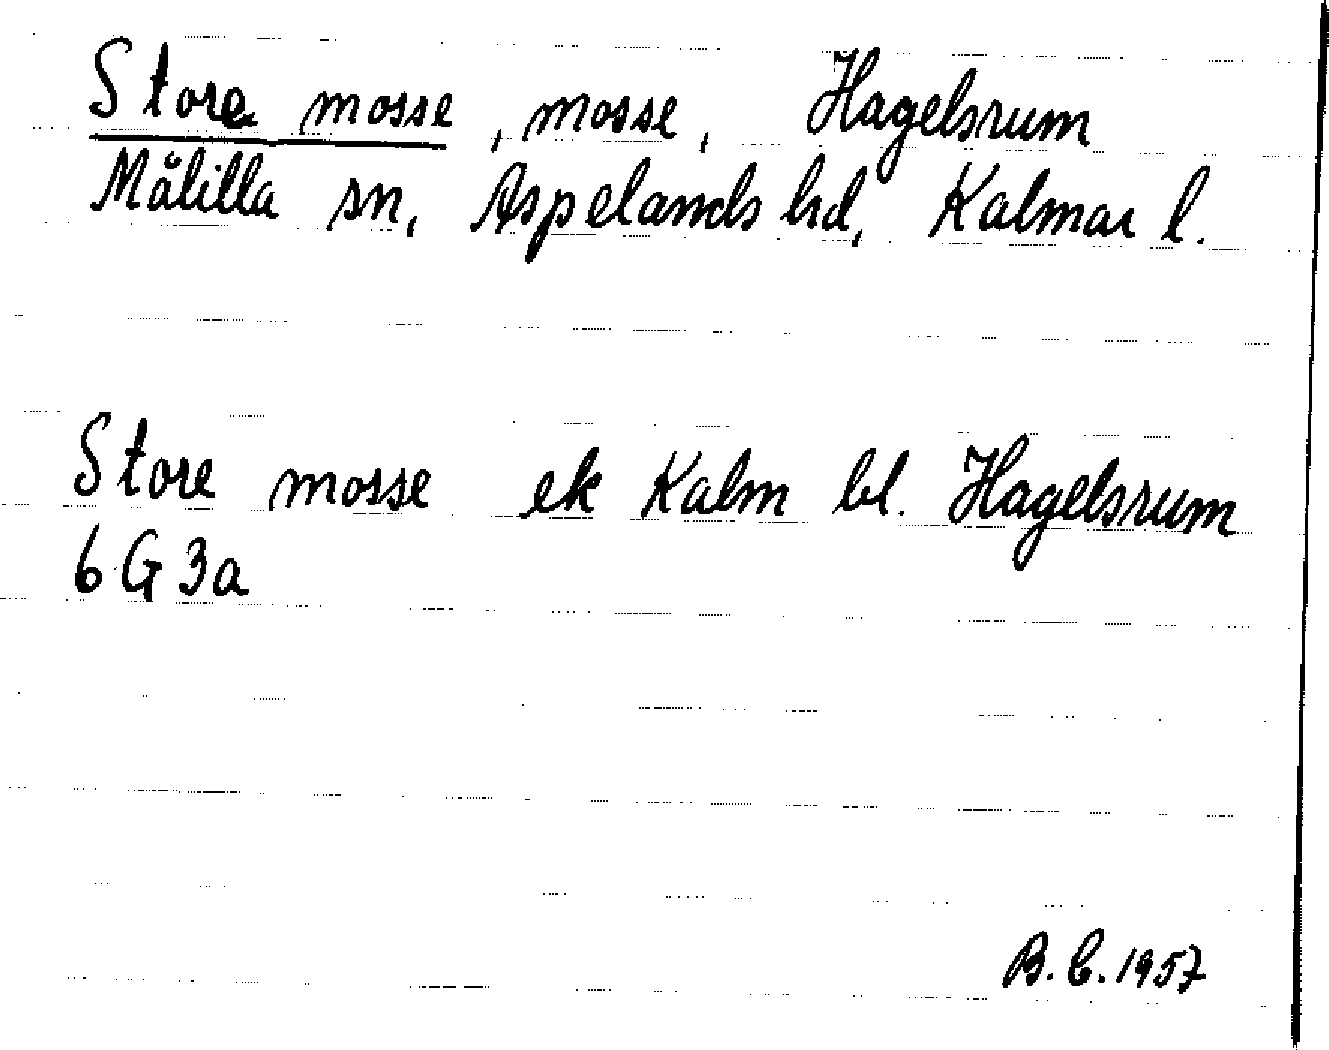 Store mosse, mosse, Hagelsrum
Målilla sn, Aspelands hd, Kalmar l.
Store mosse ek Kalm bl. Hagelsrum
6 G 3a
B. C. 1957